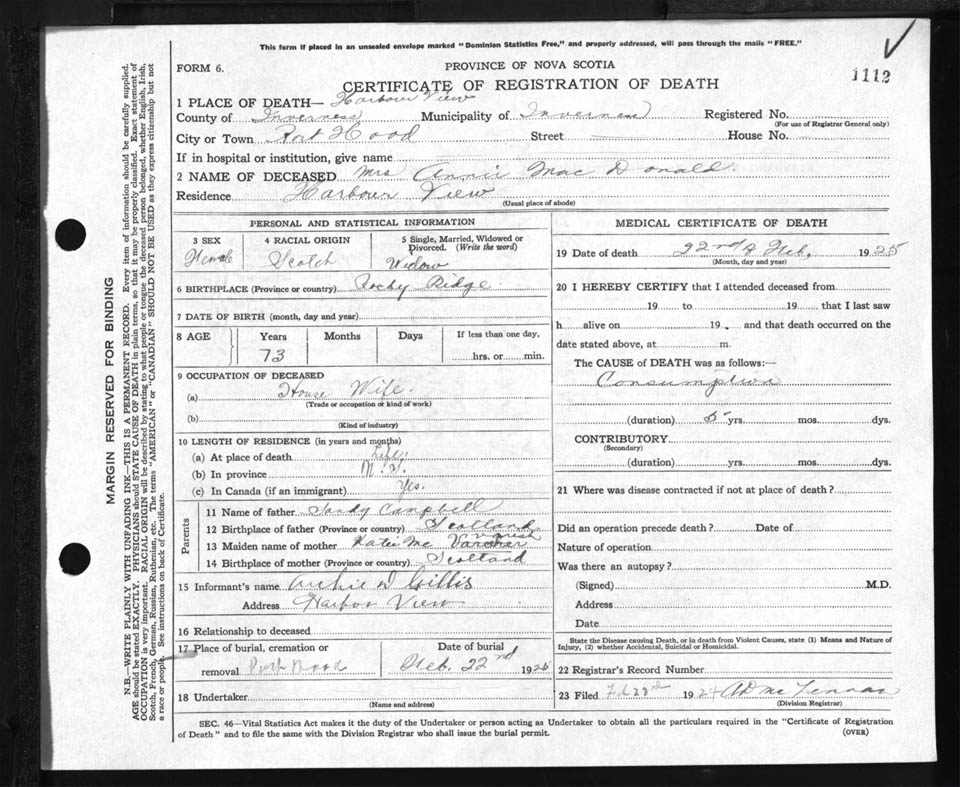 This form if placed in an unsealed envelope marked "Dominion Statistics Free," and properly addressed, will pass through the mails "FREE."
FORM 6.
PROVINCE OF NOVA SCOTIA
1112
CERTIFICATE OF REGISTRATION OF DEATH
1 PLACE OF DEATH— Harbour View
County of Inverness Municipality of Inverness Registered No.
(For use of Registrar General only)
City or Town Port Hood Street House No.
If in hospital or institution, give name
2 NAME OF DECEASED Mrs Annie Mac Donald.
Residence Harbour View
(Usual place of abode)
PERSONAL AND STATISTICAL INFORMATION
3 SEX 4 RACIAL ORIGIN 5 Single, Married, Widowed or
Divorced. (Write the word)
Female Scotch Widow
6 BIRTHPLACE (Province or country) Rocky Ridge
7 DATE OF BIRTH (month, day and year)
8 AGE Years Months Days If less than one day,
73 hrs. or min.
9 OCCUPATION OF DECEASED
(a) House Wife.
(Trade or occupation or kind of work)
(b)
(Kind of industry)
10 LENGTH OF RESIDENCE (in years and months)
(a) At place of death Life.
(b) In province N.S.
(c) In Canada (if an immigrant) Yes.
Parents
11 Name of father Sandy Campbell
12 Birthplace of father (Province or country) Scotland
13 Maiden name of mother Katie Mc Varish
14 Birthplace of mother (Province or country) Scotland
15 Informant's name Archie D Gillis
Address Harbor View
16 Relationship to deceased
17 Place of burial, cremation or Date of burial
removal Port Hood Feb. 22nd 1925
18 Undertaker
(Name and address)
MEDICAL CERTIFICATE OF DEATH
19 Date of death 22nd Feb, 1925
(Month, day and year)
20 I HEREBY CERTIFY that I attended deceased from
19 to 19 that I last saw
h alive on 19 . and that death occurred on the
date stated above, at m.
The CAUSE of DEATH was as follows:—
Consumption
(duration) 5 yrs. mos. dys.
CONTRIBUTORY
(Secondary)
(duration) yrs. mos. dys.
21 Where was disease contracted if not at place of death?
Did an operation precede death? Date of
Nature of operation
Was there an autopsy?
(Signed) M.D.
Address
Date
State the Disease causing Death, or in death from Violent Causes, state (1) Means and Nature of
Injury, (2) whether Accidental, Suicidal or Homicidal.
22 Registrar's Record Number
23 Filed 1924 AD McLennan
(Division Registrar)
SEC. 46—Vital Statistics Act makes it the duty of the Undertaker or person acting as Undertaker to obtain all the particulars required in the "Certificate of Registration
of Death" and to file the same with the Division Registrar who shall issue the burial permit.
(OVER)
MARGIN RESERVED FOR BINDING
N.B.—WRITE PLAINLY WITH UNFADING INK—THIS IS A PERMANENT RECORD. Every item of information should be carefully supplied.
AGE should be stated EXACTLY. PHYSICIANS should STATE CAUSE OF DEATH in plain terms, so that it may be properly classified. Exact statement of
OCCUPATION is very important. RACIAL ORIGIN will be described by stating to what people or tongue the deceased person belonged, whether English, Irish,
Scotch, French, German, Russian, Ruthenian, etc. The terms "AMERICAN" or "CANADIAN" SHOULD NOT BE USED as they express citizenship but not
a race or people. See instructions on back of Certificate.